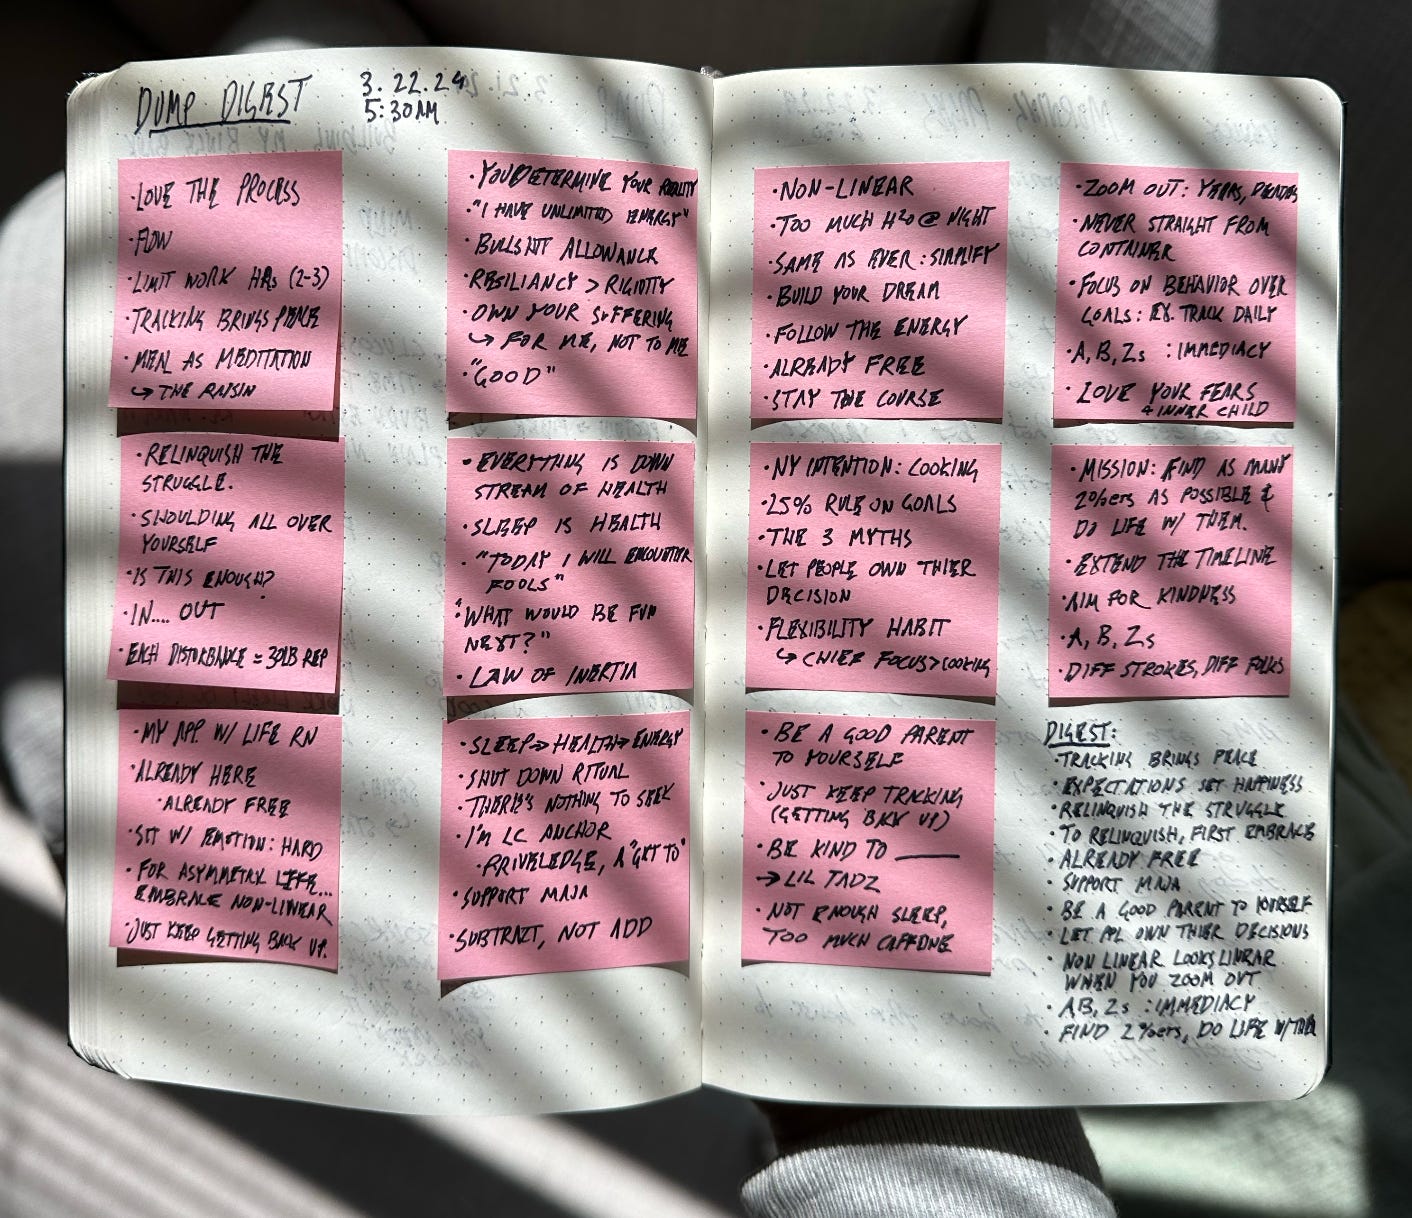 DUMP DIGEST
3.22.24
5:30AM
·LOVE THE PROCESS
·FLOW
·LIMIT WORK HRs (2-3)
·TRACKING BRINGS PEACE
·MEAL AS MEDITATION
↳ THE RAISIN
·YOU DETERMINE YOUR REALITY
·"I HAVE UNLIMITED ENERGY"
·BULLSHIT ALLOWANCE
·RESILIANCY > RIGIDITY
·OWN YOUR SUFFERING
↳ FOR ME, NOT TO ME
·"GOOD"
·NON-LINEAR
·TOO MUCH H2O @ NIGHT
·SAME AS EVER: SIMPLIFY
·BUILD YOUR DREAM
·FOLLOW THE ENERGY
·ALREADY FREE
·STAY THE COURSE
·ZOOM OUT: YEARS, DECADES
·NEVER STRAIGHT FROM
CONTAINER
·FOCUS ON BEHAVIOR OVER
GOALS: EX. TRACK DAILY
·A, B, Zs : IMMEDIACY
·LOVE YOUR FEARS
& INNER CHILD
·RELINQUISH THE
STRUGGLE.
·SHOULDING ALL OVER
YOURSELF
·IS THIS ENOUGH?
·IN.... OUT
·EACH DISTURBANCE = 30LB REP
·EVERYTHING IS DOWN
STREAM OF HEALTH
·SLEEP IS HEALTH
·"TODAY I WILL ENCOUNTER
FOOLS"
·"WHAT WOULD BE FUN
NEXT?"
·LAW OF INERTIA
·NY INTENTION: COOKING
·25% RULE ON GOALS
·THE 3 MYTHS
·LET PEOPLE OWN THIER
DECISION
·FLEXIBILITY HABIT
↳ CHIEF FOCUS > COOKING
·MISSION: FIND AS MANY
2%ers AS POSSIBLE &
DO LIFE W/ THEM.
·EXTEND THE TIMELINE
·AIM FOR KINDNESS
·A, B, Zs
·DIFF STROKES, DIFF FOLKS
·MY APP W/ LIFE RN
·ALREADY HERE
·ALREADY FREE
·SIT W/ EMOTION: HARD
·FOR ASYMMETRICAL LIFE...
EMBRACE NON-LINEAR
·JUST KEEP GETTING BACK UP.
·SLEEP → HEALTH → ENERGY
·SHUT DOWN RITUAL
·THERE'S NOTHING TO SEEK
·I'M LC ANCHOR
·PRIVELEDGE, A "GET TO"
·SUPPORT MAJA
·SUBTRACT, NOT ADD
·BE A GOOD PARENT
TO YOURSELF
·JUST KEEP TRACKING
(GETTING BACK UP)
·BE KIND TO ____
→ LIL TADZ
·NOT ENOUGH SLEEP,
TOO MUCH CAFFEINE
DIGEST:
·TRACKING BRINGS PEACE
·EXPECTATIONS SET HAPPINESS
·RELINQUISH THE STRUGGLE
·TO RELINQUISH, FIRST EMBRACE
·ALREADY FREE
·SUPPORT MAJA
·BE A GOOD PARENT TO YOURSELF
·LET PPL OWN THIER DECISIONS
·NON LINEAR LOOKS LINEAR
WHEN YOU ZOOM OUT
·AB, Zs : IMMEDIACY
·FIND 2%ers, DO LIFE W/ THEM